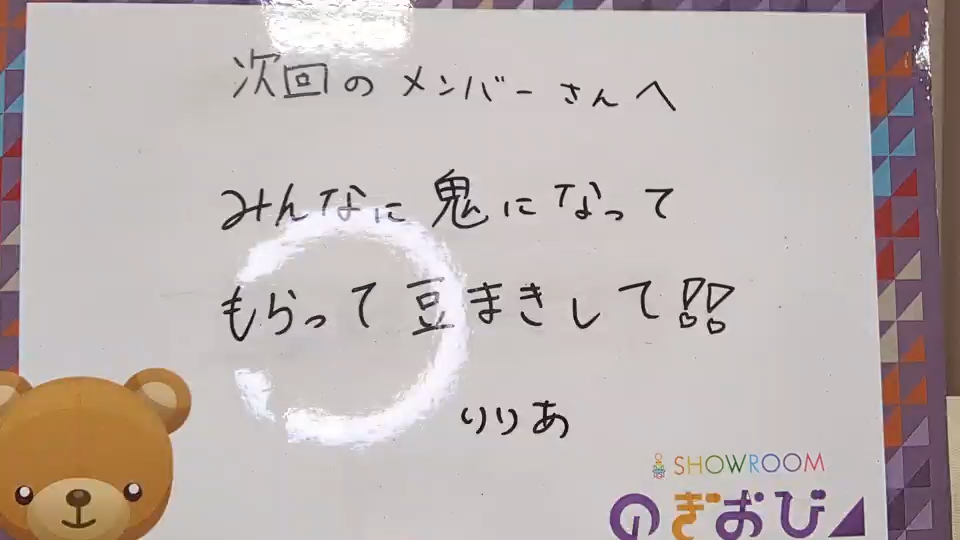 次回のメンバーさんへ
みんなに鬼になって
もらって豆まきして!!
りりあ
SHOWROOM
のぎおび